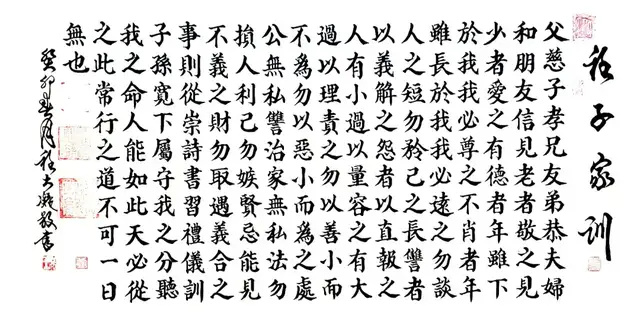 程子家训
父慈子孝兄友弟恭夫婦
和朋友信見老者敬之見
少者愛之有德者年雖下
於我我必尊之不肖者年
雖長於我我必遠之勿談
人之短勿矜己之長讐者
以義解之怨者以直報之
人有小過以量容之有大
過以理責之勿以善小而
不為勿以惡小而為之處
公無私讐治家無私法勿
損人利己勿嫉賢忌能見
不義之財勿取遇義合之
事則從崇詩書習禮儀訓
子孫寬下屬守我之分聽
我之命人能如此天必從
之此常行之道不可一日
無也
癸卯春月程大敬書